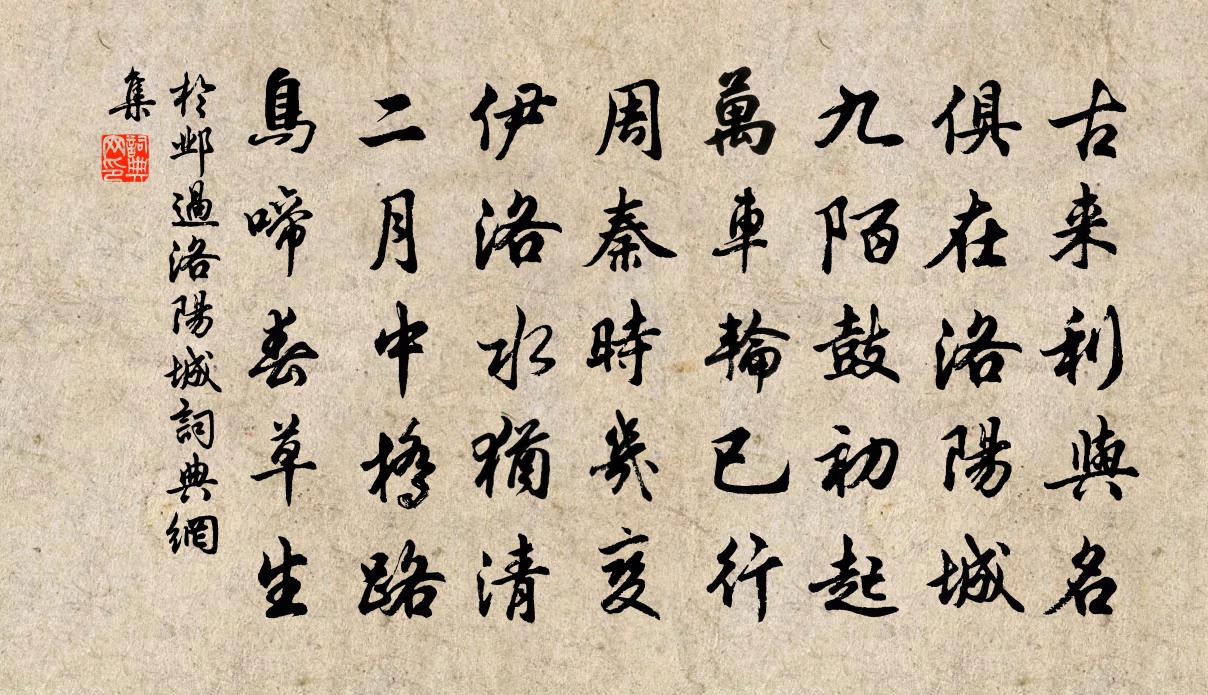 古来利與名
俱在洛陽城
九陌鼓初起
萬車輪已行
周秦時幾变
伊洛水猶清
二月中橋路
鳥啼春草生
於鄴過洛陽城詞典網
集
詞典
网印